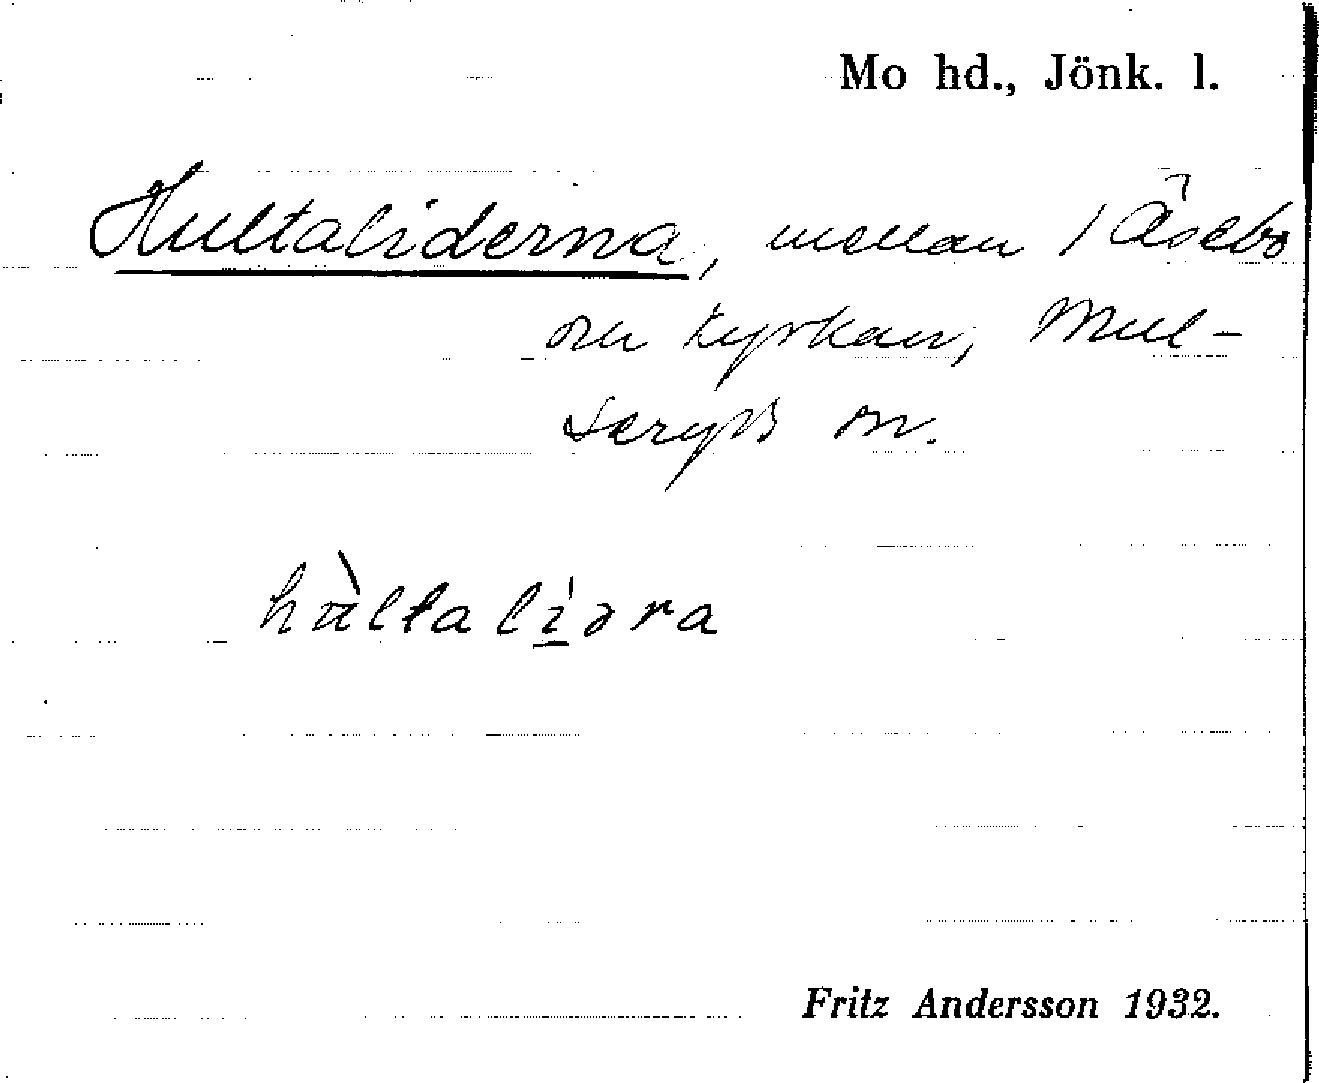 Mo hd., Jönk. l.
Hultaliderna, mellan 1 Åsebo
kyrkan, Mul-
seryds
hùltalíəra
Fritz Andersson 1932.